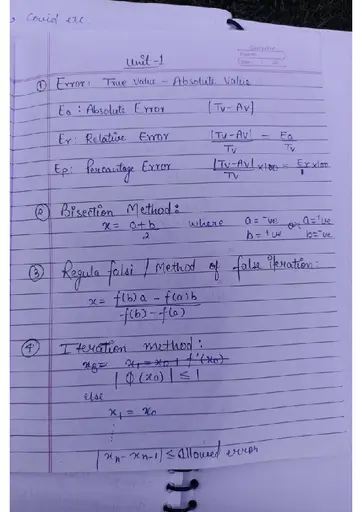 , Covid etc
Unit-1
① Error: True Value - Absolute Value
Ea: Absolute Error |Tv-Av|
Er: Relative Error |Tv-Av|/Tv = Ea/Tv
Ep: Percentage Error |Tv-Av|/Tv x100 = Er x100/1
② Bisection Method:
x = a+b/2 where a = -ve or a = +ve
b = +ve b = -ve
③ Regula falsi / Method of false iteration:
x = f(b)a - f(a)b / f(b) - f(a)
④ Iteration method:
|ϕ(x0)| ≤ 1
use
x1 = x0
⋮
|xn - xn-1| ≤ Allowed error